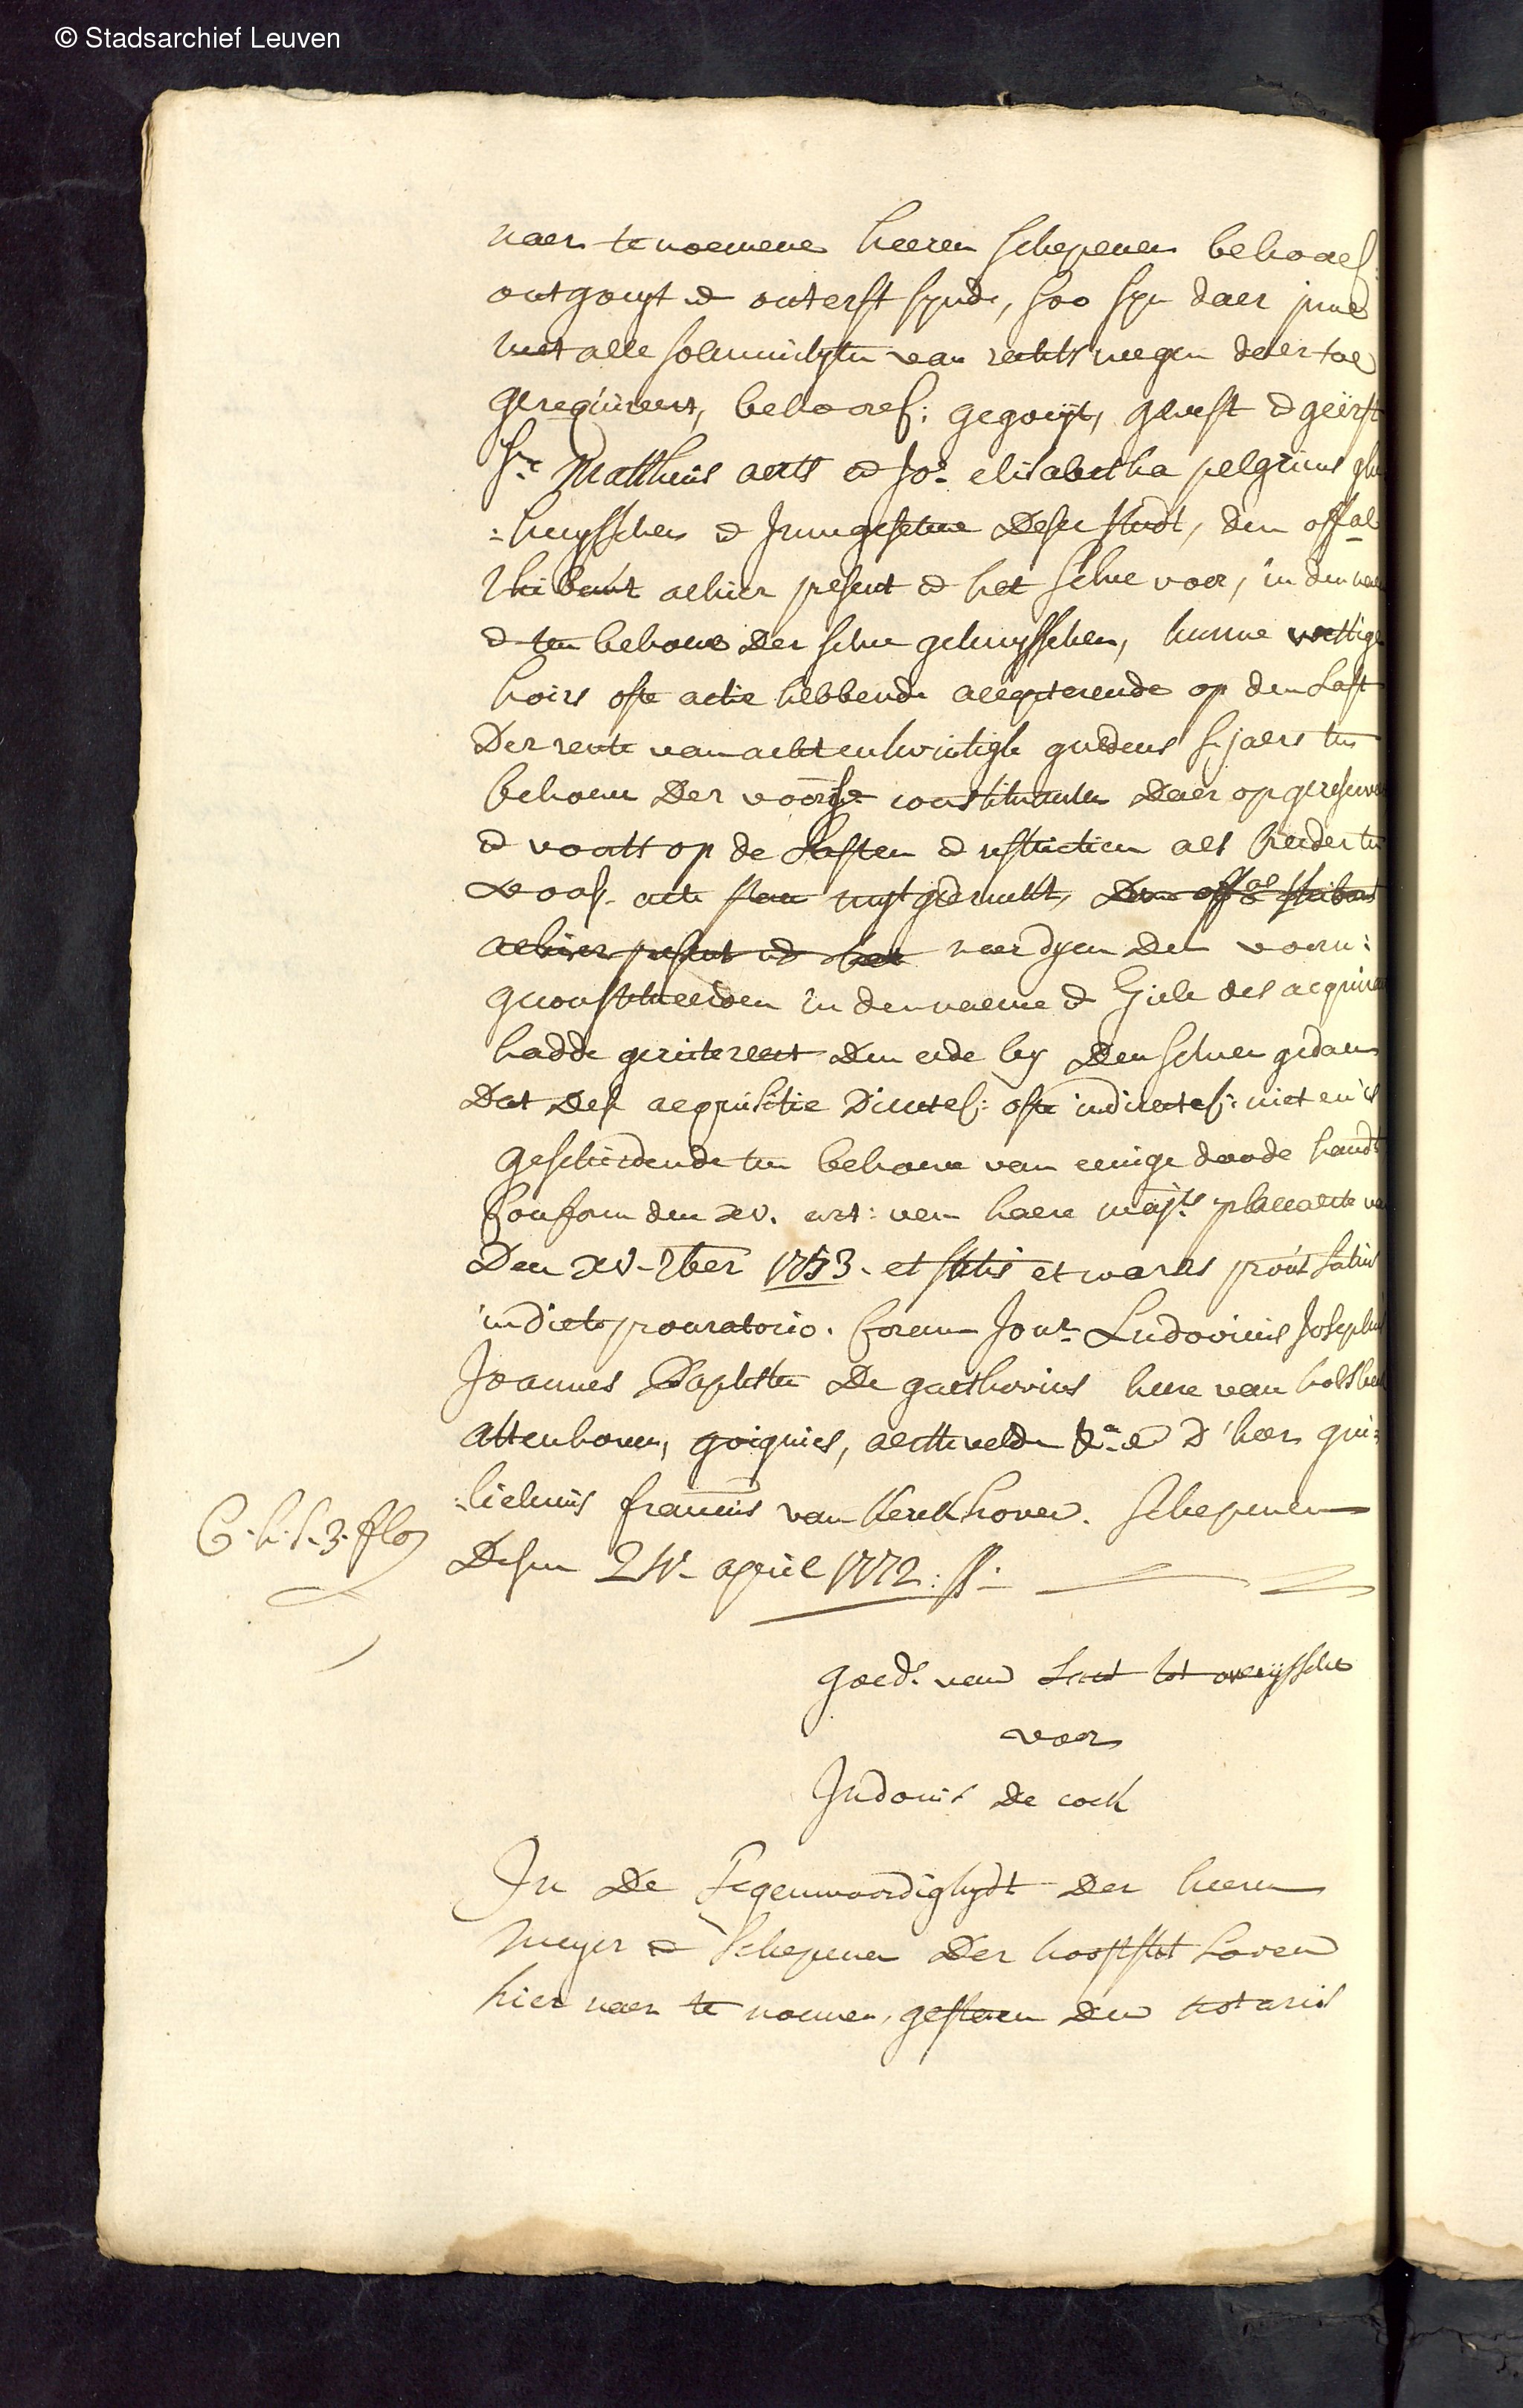 © Stadsarchief Leuven
naer te noemene heeren schepenen behoorel:
ontgoeyt & onterft synde, soo syn daer inne
met alle solemniteyten van rechts weegen daer toe
gerequireert, behoorel: gegoeyt, gevest & geërft
Sr. Mattheus aerts & Jo.e elisabetha pelgrims ghe
=huysschen & Innegesetene deser stadt, den offal
thibaut alhier present & het selve voor, in den nae
& ten behoeve der selve gehuysschen, hunne wettige
hoirs ofte actie hebbende accepterende op den Last
der rente van achtentwintigh guldens s'jaers ten
behoeve der voorsc. constituanten daer op gereserve
& voorts op de Lasten & restrictien als breeder in
voors. acte staen uytgedruckt, den offal thibaut
alhier present & het naer dyen den voorn:
geconstitueerden in den naeme & Ziele des acquira
hadde gereitereert den eede by den selven gedaen
dat dese acquisitie directel: ofte indirectel: niet en is
geschiedende ten behoeve van eenige doode handt
Conform den xv. art: van haere majts. placcaerte va
Den xv. 7ber 1753. et satis et waras prout latius
in dicto procuratorio. Coram Jonr. Ludovicus Josephus
Joannes Baptista De gaethovius heere van holsbeek
attenhoven, goignies, aertsvelde &a. & d'heer gui=
=lielmus francis van kerckhoven. schepenen
C.h.s.3.flo
Desen 24. april 1772.
goed. van Laet tot overyssche
voor
Judocus De cock
In De Tegenwoordigheydt der heeren
meyer & schepenen der hooftstadt Loven
hier naer te noemen, gestaen den notaris